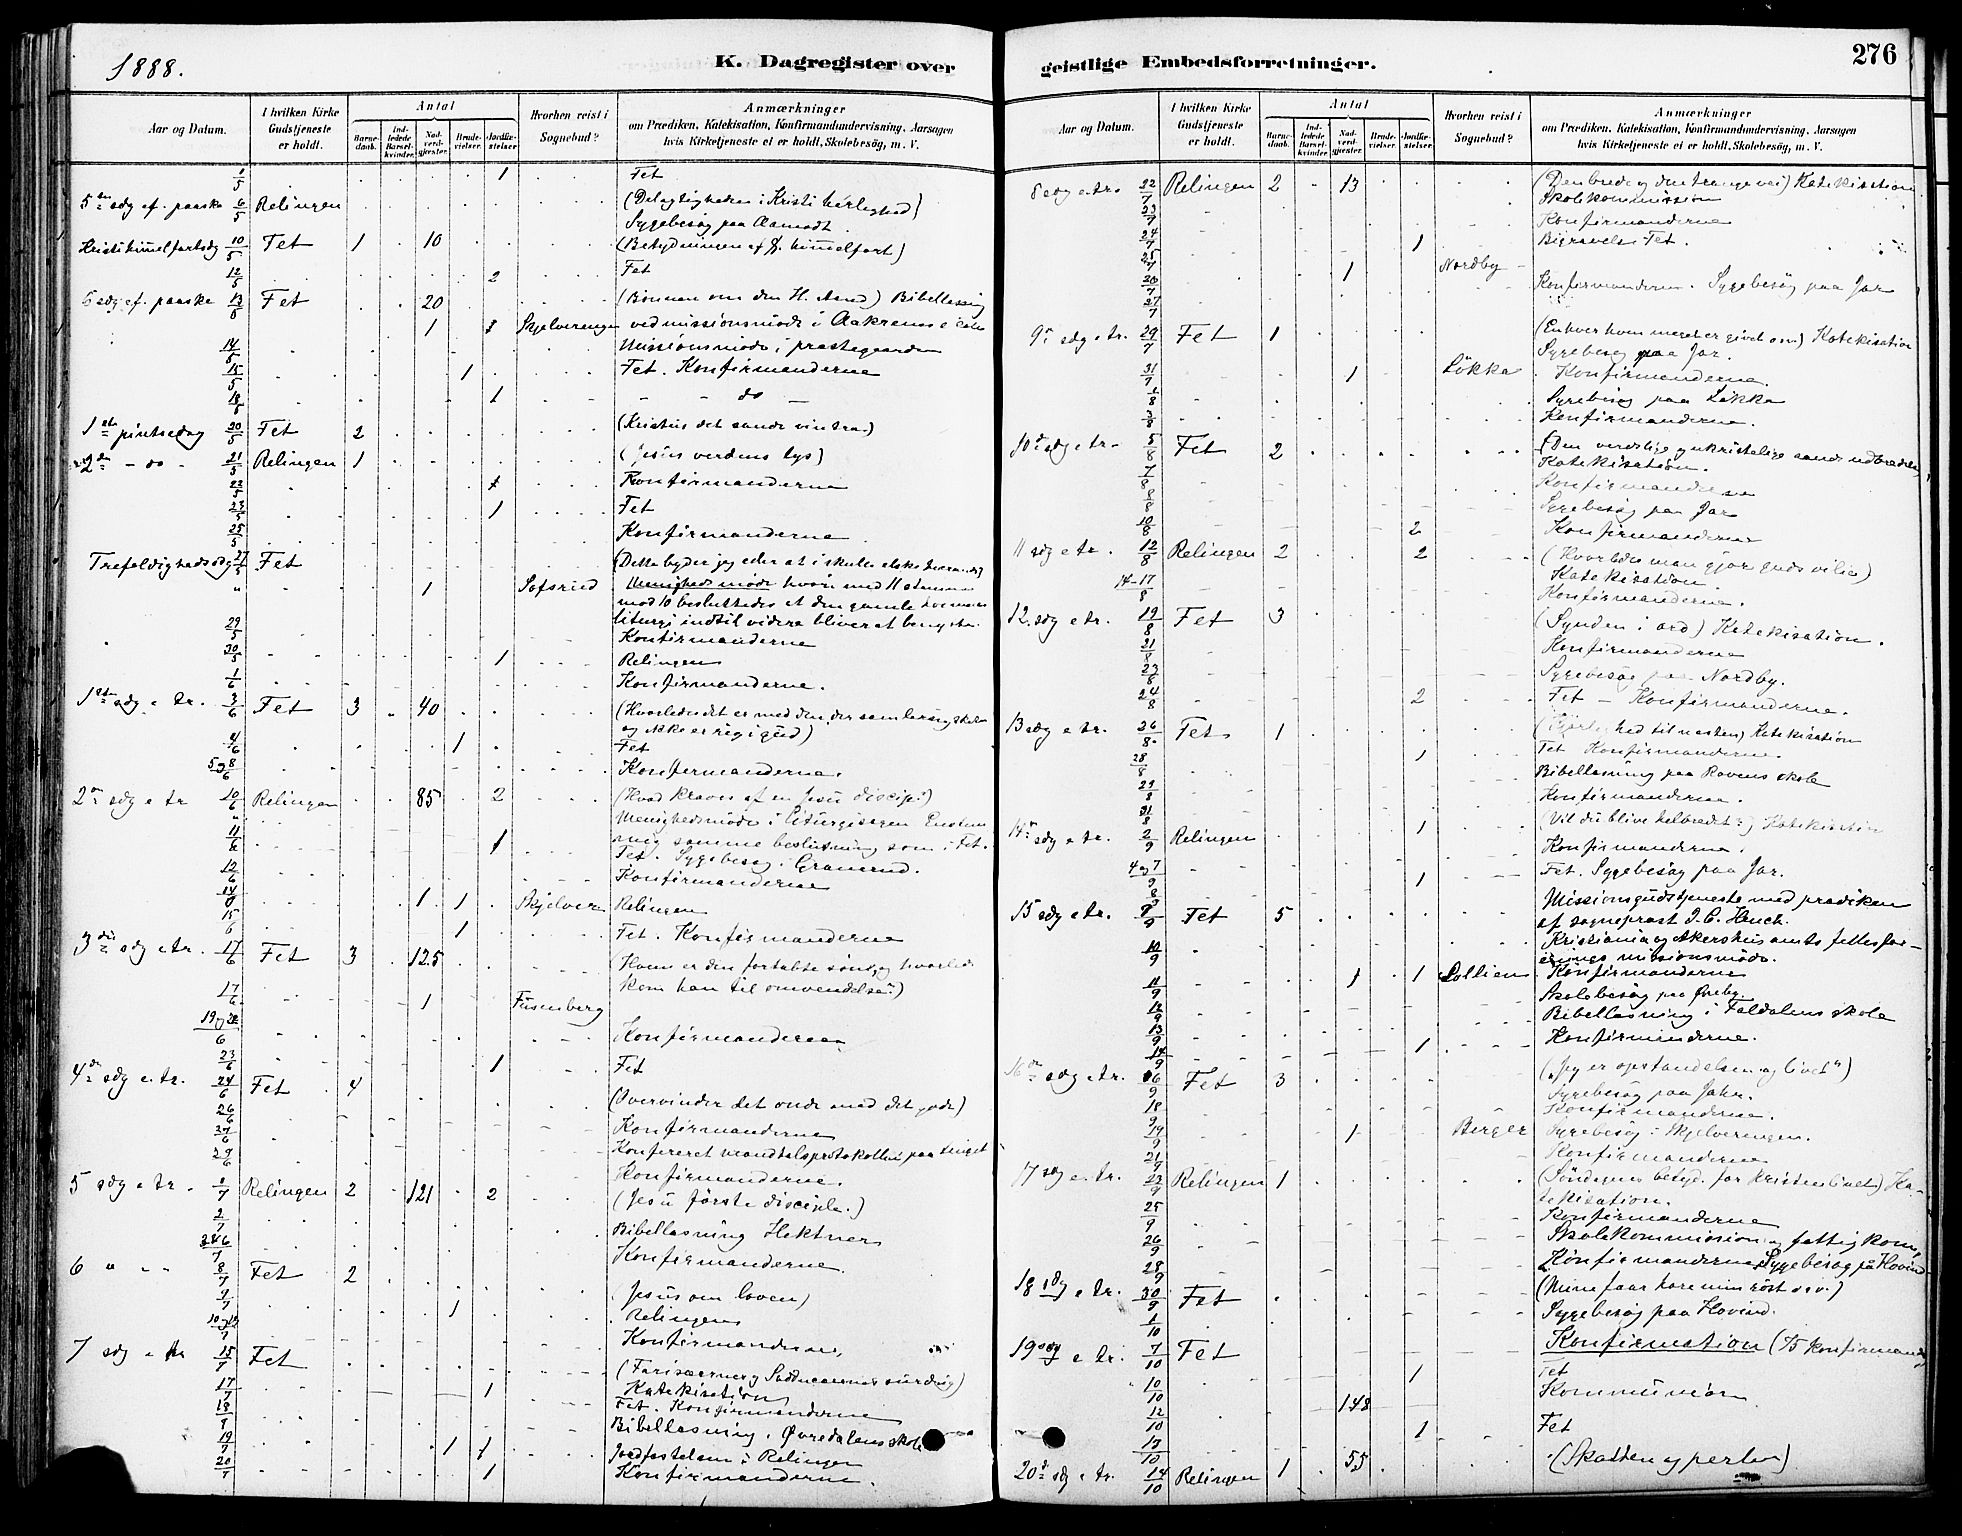 1888.
K. Dagregister over
Aar og Datum.
I hvilken Kirke Gudstjeneste er holdt.
Antal
Barnedaab.
Indledede Barselkvinder.
Nadverdgjester.
Brudevielser.
Jordfæstelser.
Hvorhen reist i Sognebud?
Anmærkninger
om Prædiken, Katekisation, Konfirmandundervisning, Aarsagen
hvis Kirketjeneste ei er holdt, Skolebesög, m. V.
1/5 1 Fet
5te sdg ef. paaske 6/5 Relingen (Delagtigheden i Kristi herlighed)
Sygebesög paa Aamodt.
Kristi himmelfartsdg 10/5 Fet 1 10 (Betydningen af J. himmelfart)
12/5 2 Fet
6 sdg ef. paaske 13/5 Fet 20 (Bönnen om den H. Aand) Bibellæsning
1 Skjelverengen ved missionsmöde i Aakrene
14/5 Missionsmöde i prestegaarden
15/5 1 Fet. Konfirmanderne
18/5 1 - - do -
1ste pintsedag 20/5 Fet 2 (Kristus det sande vintræ)
2den - do - 21/5 Relingen 1 (Jesus verdens lys)
22/5 1 Konfirmanderne
23/5 1 Fet
25/5 Konfirmanderne
Trefoldighedssdg 27/5 Fet (Dette byder jeg eder at i skulle elske hverandre)
" 1 Menighedsmöde hvori med 11 stemmer
mod 10 besluttedes at den gamle
liturgi indtil videre bliver at benytte
29/5 Konfirmanderne
30/5 1 Relingen
1/6 Konfirmanderne.
1ste sdg e. tr. 3/6 Fet 3 40 (Hvorledes det er med den der samler sig skatte
og ikke er rig i gud)
4/6 1 Fet
5 og 8/6 Konfirmanderne.
2den sdg e tr 10/6 Relingen 85 2 (Hvad kræves af en Jesu discip.?)
" Menighedsmöde i Liturgisagen Enstem
mig samme beslutning som i Fet.
11/6 1 Fet. Sygebesög i Granerud.
12/6 Konfirmanderne
14/6 1 1 Skjelver Relingen
15/6 1 Fet. Konfirmanderne
3die sdg e tr. 17/6 Fet 3 125 (Hvem er den fortabte sön og hvorled.
kom han til omvendelse?)
17/6 1 Fusenberg
19 og 22/6 Konfirmanderne
23/6 1 Fet
4de sdg e. tr. 24/6 Fet 4 (Overvinder det onde med det gode)
26/6 Konfirmanderne
27/6 Konfereret mandtalsprotokollen paa tinget
29/6 Konfirmanderne.
5 sdg e tr. 1/7 Relingen 2 121 2 (Jesu förste disciple.)
2/7 Bibellæsning Hektner
3 & 6/7 Konfirmanderne.
6 " " " 8/7 Fet 2 (Jesus om loven)
9/7 1 Relingen
10 og 13/7 Konfirmanderne,
7 sdg e tr 15/7 Fet (Farisæernes og Sadducæernes surdeig)
Katekisation
17/7 1 Fet. Konfirmanderne
18/7 Bibellæsning i Övredalens skole
19/7 1 1 Jordfæstelsen i Relingen
20/7 1 Konfirmanderne.
geistlige Embedsforretninger.
276
Aar og Datum.
I hvilken Kirke Gudstjeneste er holdt.
Antal
Barnedaab.
Indledede Barselkvinder.
Nadverdgjester.
Brudevielser.
Jordfæstelser.
Hvorhen reist i Sognebud?
Anmærkninger
om Prædiken, Katekisation, Konfirmandundervisning, Aarsagen
hvis Kirketjeneste ei er holdt, Skolebesög, m. V.
8 sdg e tr. 22/7 Relingen 2 13 (Den brede og den trange vei) Katekisation
23/7 Skolekommission
24/7 Konfirmanderne
25/7 1 Fet.
1 Nordby
27/7 Konfirmanderne. Sygebesög paa Jar
9de sdg e tr. 29/7 Fet 1 (Enhver hvem meget er givet osv) Katekisation
Sygebesög paa Jar.
31/7 1 Lökka Konfirmanderne.
1/8 Sygebesög paa Lökka
3/8 Konfirmanderne.
10de sdg e tr. 5/8 Fet 2 (Den verdslige og ukristelige sands udbredelse)
Katekisation.
7/8 Konfirmanderne
8/8 Sygebesög paa Jar
10/8 2 Konfirmanderne
11 sdg e tr. 12/8 Relingen 2 2 (Hvorledes man gjör guds vilie)
Katekisation
14-17/8 Konfirmanderne.
12. sdg e tr. 19/8 Fet 3 (Synden i ord) Katekisation.
21/8 Konfirmanderne
23/8 Sygebesög paa Nordby.
24/8 2 Fet - Konfirmanderne.
13 sdg e tr. 26/8 Fet 1 (Kjærlighed til næsten) Katekisation
28/8 1 Fet Konfirmanderne.
29/8 Bibellæsning paa Ravens skole
31/8 Konfirmanderne.
14de sdg e tr. 2/9 Relingen 1 (Vil du blive helbredt?) Katekisation
4 og 7/9 Konfirmanderne.
8/9 1 Fet. Sygebesög paa Jar.
15 sdg e tr. 9/9 Fet 5 Missionsgudstjeneste med prædiken
af sogneprest J. C. Heuch.
10/9 Kristiania og Akershus amts fællesfor-
enings missionsmöde.
11/9 1 1 Lollien Konfirmanderne
12/9 Skolebesög paa Öieby
13/9 Bibellæsning i Faldalens skole
14/9 1 Konfirmanderne.
16de sdg e tr. 16/9 Fet 3 („Jeg er opstandelsen og livet“)
Sygebesög paa Jahr.
18/9 Konfirmanderne.
19/9 1 Berger Sygebesög i Skjelverengen.
21/9 Konfirmanderne
17 sdg e. tr. 23/9 Relingen 1 (Söndagens betyd. for kristenlivet) Ka-
tekisation.
25/9 Konfirmanderne
26/9 Skolekommission og fattigkom.
28/9 Konfirmanderne, Sygebesög på Hovind
18 sdg e tr. 30/9 Fet (Mine faar höre min röst osv.)
1/10 Sygebesög paa Hovind.
19 sdg e tr. 7/10 Fet Konfirmation (75 konfirmander)
10/10 1 Fet
12/10 148 Kommunion
13/10 1 Fet
20de sdg e tr. 14/10 Relingen 1 55 (Skatten og perlen)